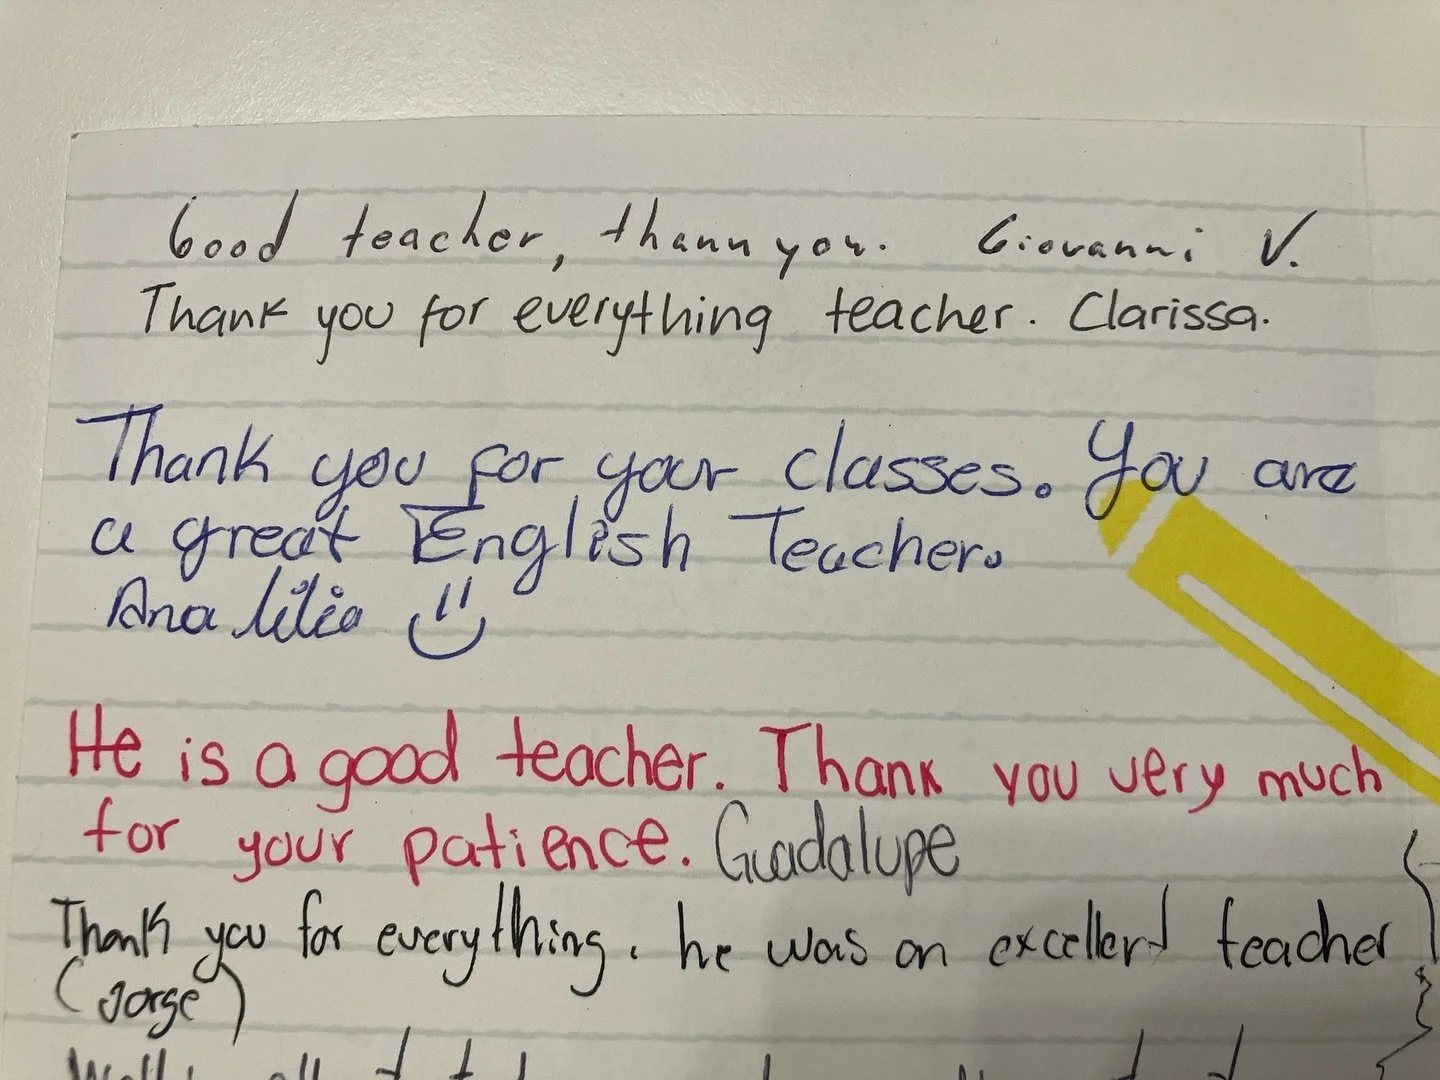 Good teacher, thann you. Giovanni V.
Thank you for everything teacher. Clarissa.
Thank you for your classes. You are
a great English Teacher.
Ana Lilia
He is a good teacher. Thank you very much
for your patience. Guadalupe
Thank you for everything. he was an excellent teacher
(Jorge)